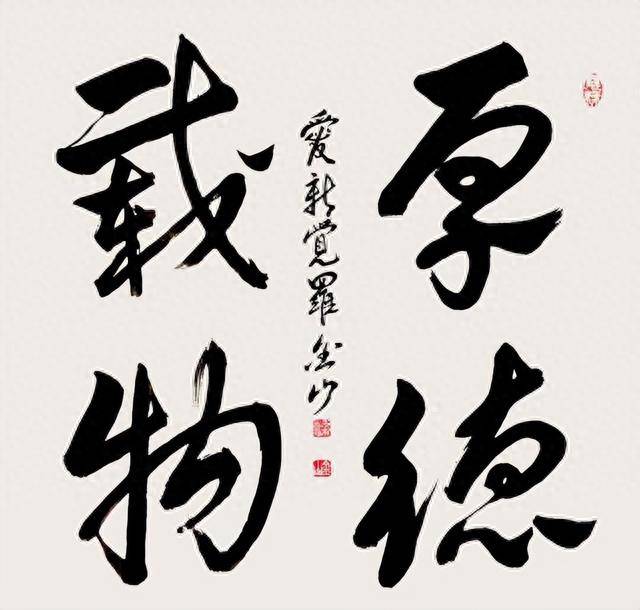 厚德
载物
愛新覺羅金山